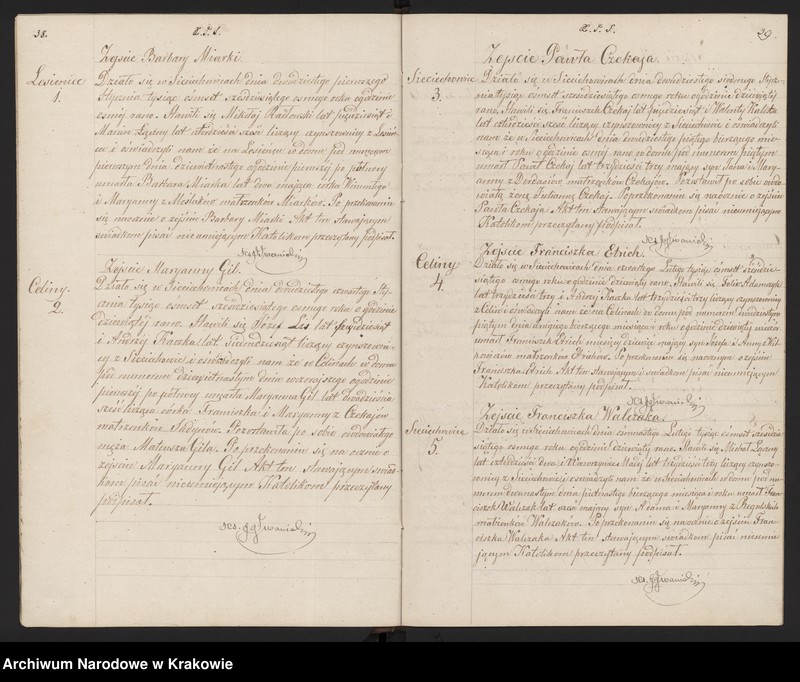 38.
Lesieniec
1.
Zejście Barbary Miarki.
Działo się w Sieciechowicach dnia dwudziestego pierwszego
Stycznia tysiąc ośmset sześdziesiątego osmego roku o godzinie
osmej rano. Stawili się Mikołaj Radłowski lat pięćdziesiąt i
Marcin lat czterdzieści sześć liczący czynszownicy z
i oświadczyli nam że na w domu pod numerem
pierwszym dnia dziewiętnastego o godzinie pierwszej po północy
umarła Barbara Miarka lat dwa mająca córka Wincentego
i Maryanny z małżonków Miarków. Po przekonaniu
się naocznie o zejściu Barbary Miarki Akt ten stawającym
świadkom pisać nieumiejącym Katolikom przeczytany podpisał.
Celiny.
2.
Zejście Maryanny Gil.
Działo się w Sieciechowicach dnia dwudziestego czwartego Sty-
cznia tysiąc ośmset sześdziesiątego osmego roku o godzinie
dziewiątej rano. Stawili się Józef Lis lat pięćdziesiąt
i Andrzéj Kaczka lat trzydzieści liczący czynszowni-
cy z Sieciechowic i oświadczyli nam że w Celinach w domu
pod numerem dziewiętnastym dnia wczorajszego o godzinie
pierwszej po północy umarła Maryanna Gil lat dwadzieścia
sześć licząca córka Franciszka i Maryanny z Czekajów
małżonków. Pozostawiła po sobie owdowiałego
męża Mateusza Gila. Po przekonaniu się na ocznie o
zejściu Maryanny Gil Akt ten stawającym świad-
kom pisać nieumiejącym Katolikom przeczytany
podpisał.
29.
Sieciechowice
3.
Zejście Pawła Czekaja.
Działo się w Sieciechowicach dnia dwudziestego siodmego Stycz-
nia tysiąc ośmset sześdziesiątego osmego roku o godzinie dziewiątej
rano, Stawili się Franciszek Czekaj lat pięćdziesiąt i Walenty
lat czterdzieści sześć liczący czynszownicy z Sieciechowic i oświadczyli
nam że w Sieciechowicach dnia dwudziestego piątego bieżącego mie-
siąca i roku o godzinie osmej rano w domu pod numerem piątym
umarł Paweł Czekaj lat trzydzieści trzy mający syn Jana i Mary-
anny z małżonków Czekajów. Pozostawił po sobie owdo-
wiałą żonę Juliannę Czekaj. Po przekonaniu się naocznie o zejściu
Pawła Czekaja Akt ten stawającym świadkom pisać nieumiejącym
Katolikom przeczytany podpisał.
Celiny
4.
Zejście Franciszka
Działo się w Sieciechowicach dnia czwartego Lutego tysiąc ośmset sześdzie-
siątego osmego roku o godzinie dziewiątej rano, Stawili się Felix Adamczyk
lat trzydzieści trzy i Andrzej Kaczka lat trzydzieści trzy liczący czynszownicy
z Celin i oświadczyli nam że na Celinach w domu pod numerem dwudziestym
piątym dnia drugiego bieżącego miesiąca i roku o godzinie dziewiątej wieczór
umarł Franciszek miesięcy dziewięć mający syn Józefa i Anny z
małżonków. Po przekonaniu się naocznem o zejściu
Franciszka Akt ten stawającym świadkom pisać nieumiejącym
Katolikom przeczytany podpisał.
Sieciechowice
5.
Zejście Franciszka Walczaka.
Działo się w Sieciechowicach dnia osmnastego Lutego tysiąc ośmset sześdzie-
siątego osmego roku o godzinie dziewiątej rano, Stawili się Michał
lat czterdzieści dwa i Wawrzyniec lat trzydzieści trzy liczący czynszo-
wnicy z Sieciechowic i oświadczyli nam że w Sieciechowicach w domu pod nu-
merem dwunastym dnia piętnastego bieżącego miesiąca i roku umarł Fran-
ciszek Walczak lat sześć mający syn Adama i Maryanny z
małżonków Walczaków. Po przekonaniu się naocznie o zejściu Fran-
ciszka Walczaka Akt ten stawającym świadkom pisać nieumie-
jącym Katolikom przeczytany podpisał.
Archiwum Narodowe w Krakowie